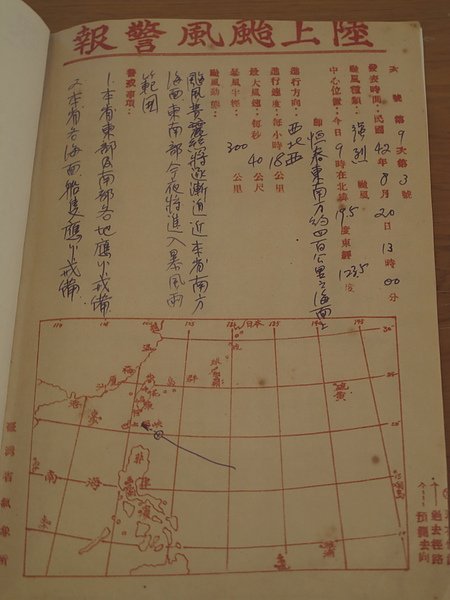 陸上颱風警報
號第9次第3號
發表時間:民國42年8月20日13時00分
颱風種類:強烈颱風
中心位置:今日9時在北緯19.5度東經123.5度
即恒春東南方約四百公里之海面上
進行方向:西北西
進行速度:每小時18公里
最大風速:每秒40公尺
暴風半徑:300公里
颱風動態:
颱風費麗絲將逐漸迫近本省南方
海面東南部今夜將進入暴風雨
範圍
警戒事項:
1.本省東部及南部各地應小戒備
2.本省各海面船隻應小戒備
日本
琉球
硫黃
南海
臺灣省氣象所
過去徑路
預測去向